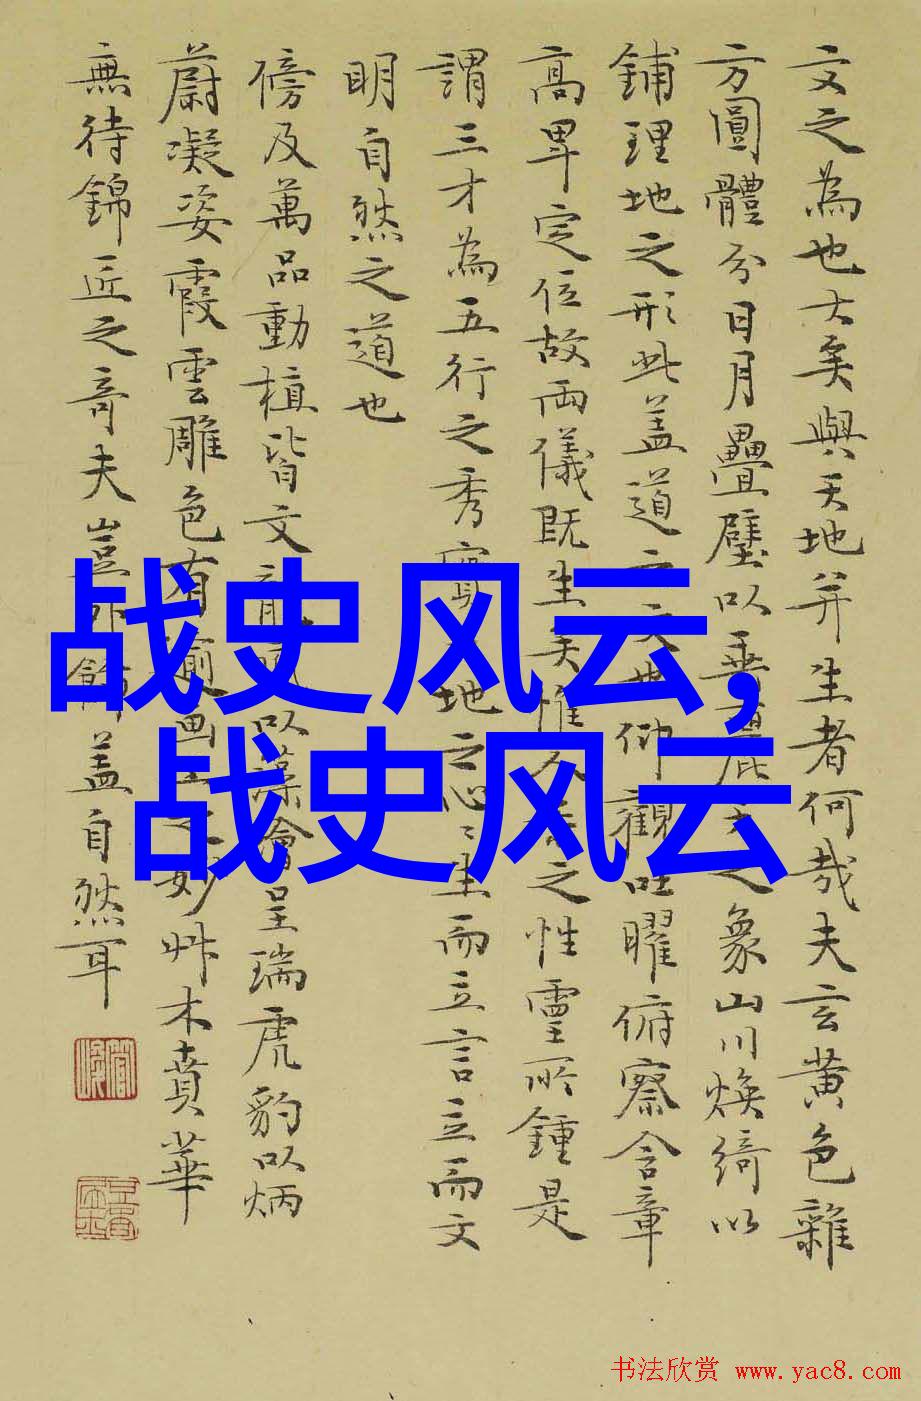 文之為也大矣與天地并生者何哉夫玄黄色雜
方圓體分日月疊璧以垂麗之象山川煥綺以
鋪理地之形此盖道之文也仰觀吐曜俯察含章
高卑定位故兩儀既生矣惟人之性靈所鍾是
謂三才為五行之秀實地之心〻生而立言立而文
明自然之道也
傍及萬品動植皆文龍以藻繪呈瑞虎豹以炳
蔚凝姿霞雲雕色有妙艸木賁華
無待錦匠之奇夫豈外飾盖自然耳
战史风云,
战史风云
书法欣赏 www.yac8.com